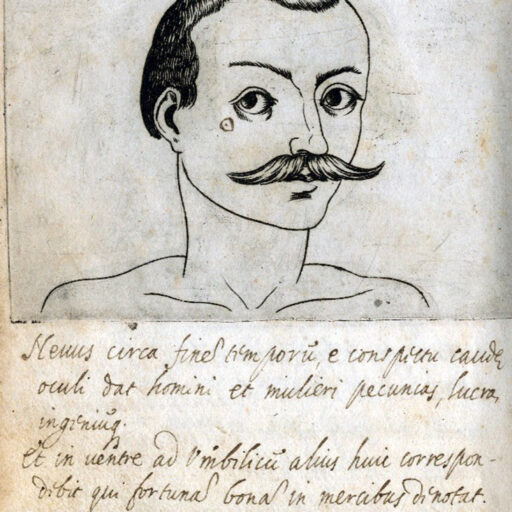 Neuus circa fines temporũ, e conspectu caudę
oculi dat homini et mulieri pecunias, lucra,
ingeniũq.
Et in uentre ad Vmbilicũ alius huic correspon-
debit qui fortunas bonas in mercibus denotat.